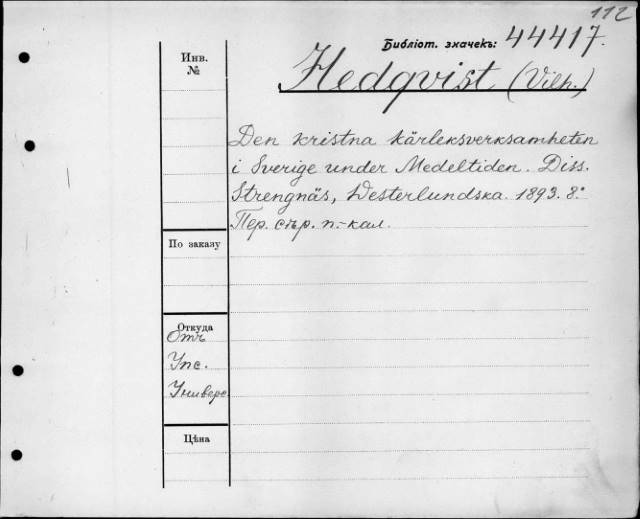 112
Библіот. значекъ: 44417.
Инв.
№
Hedqvist (Vilh.)
Den kristna kärleksverksamheten
i Sverige under Medeltiden. Diss.
Strengnäs, Westerlundska. 1893. 8°
Пер. сѣр. п.-кал.
По заказу
Откуда
Отъ
Упс.
Универс
Цѣна